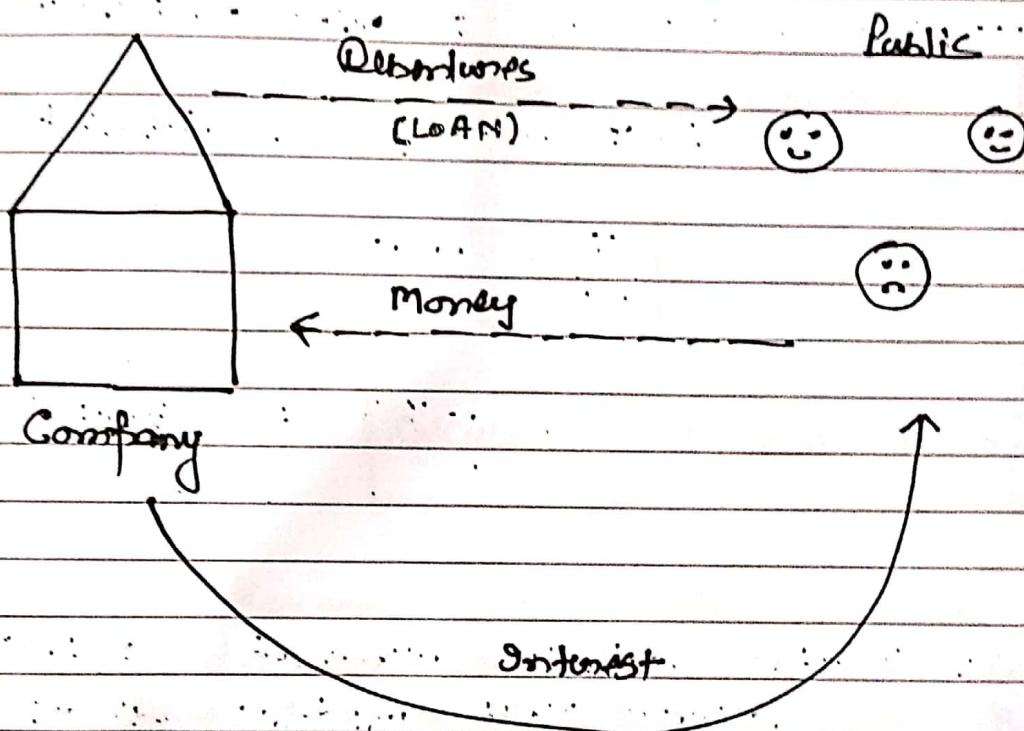 Debentures
Public
(LOAN)
Money
Company
Interest